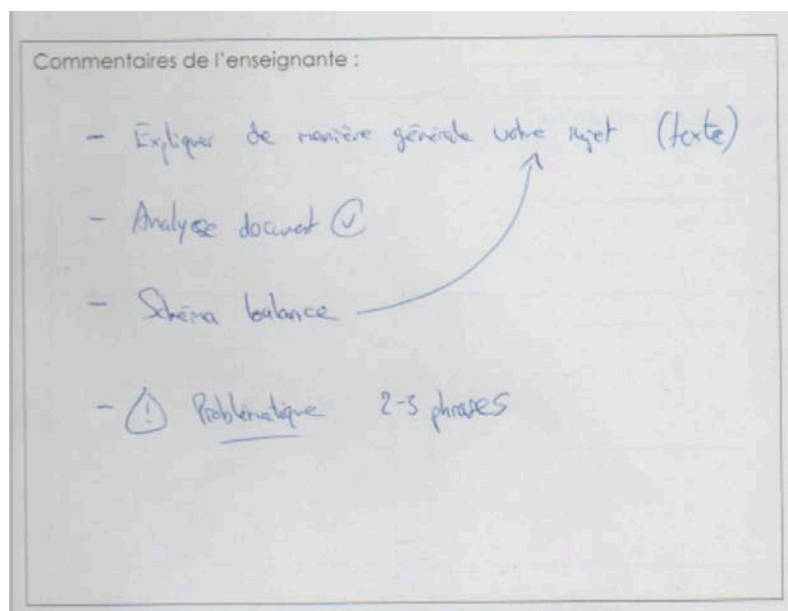 Commentaires de l'enseignante :
- Expliquer de manière générale votre sujet (texte)
- Analyse document
- Schéma balance
- ! Problématique 2-3 phrases